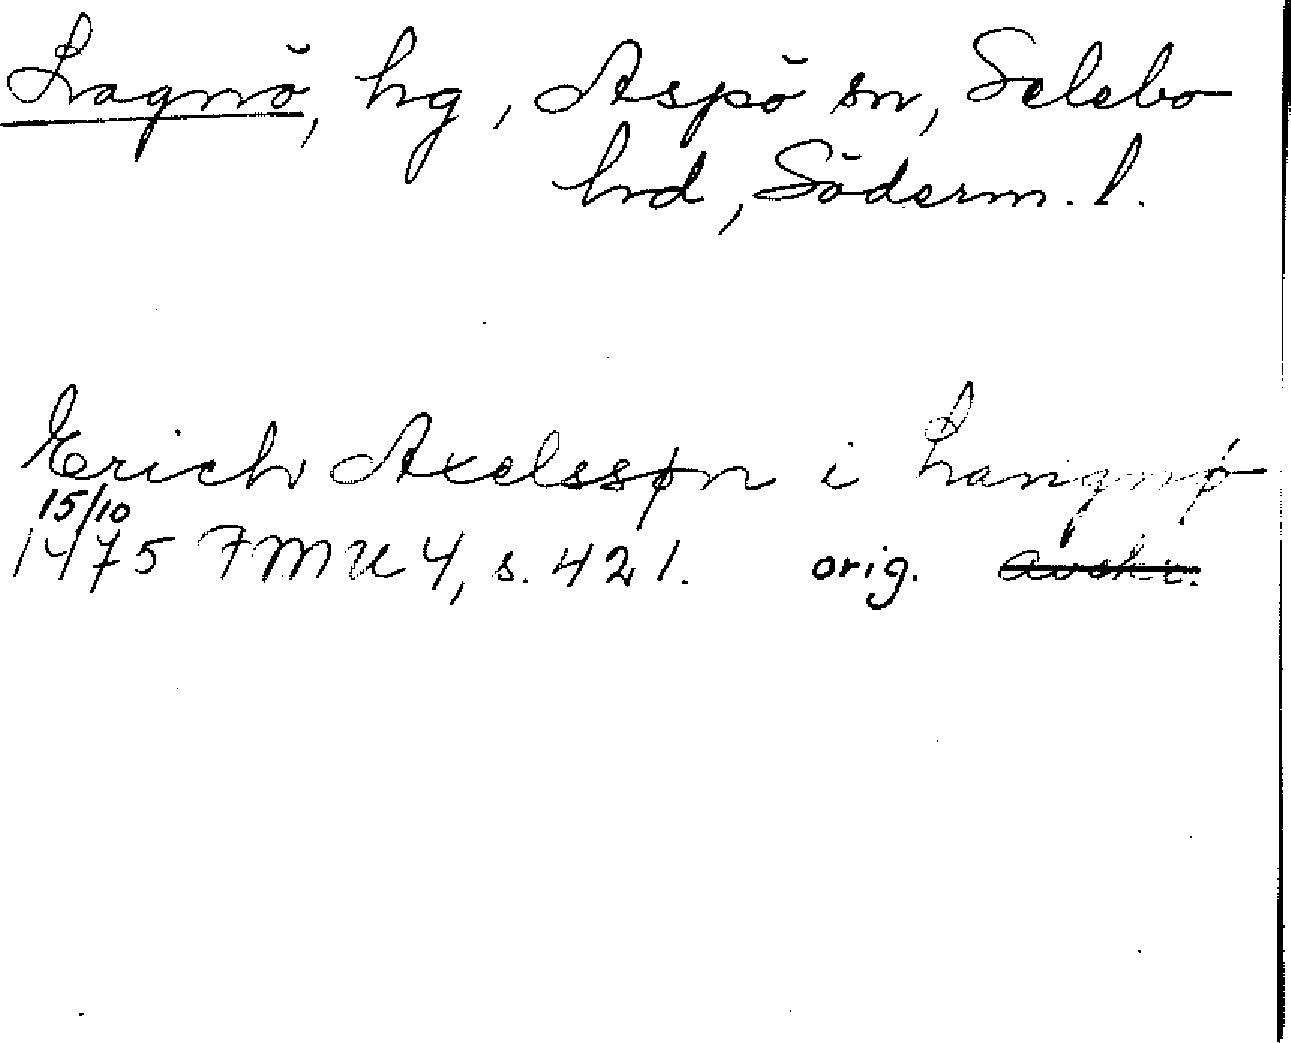 Lagnö, hg, Aspö sn, Selebo
hd, Söderm. l.
Erich Axelssøn i Langnø
15/10
1475 FMU 4, s. 421. orig. avskr.